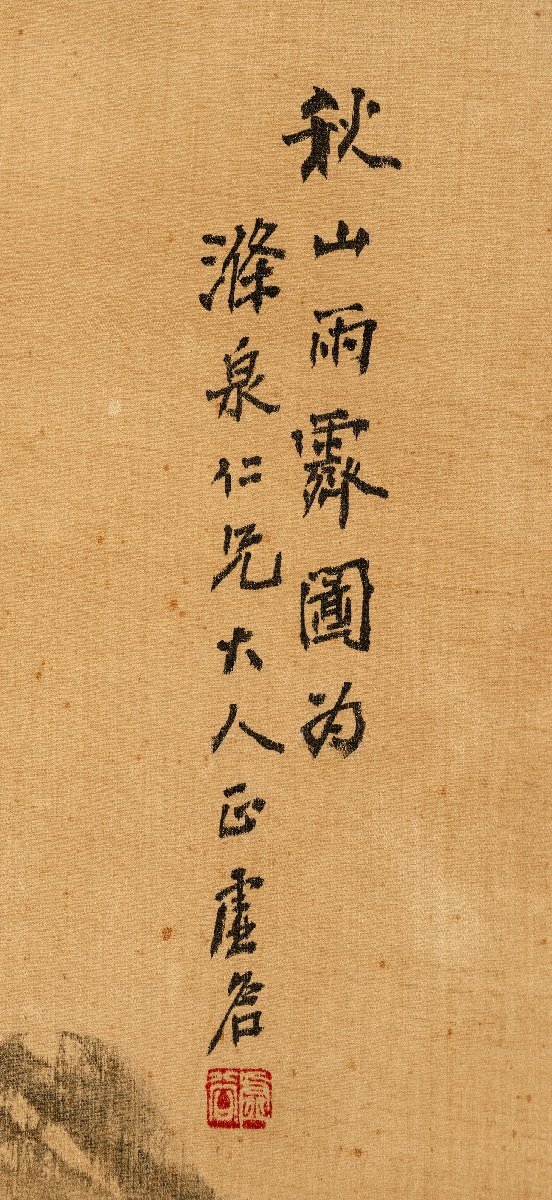 秋山雨霽圖为
滌泉仁兄大人正虛谷